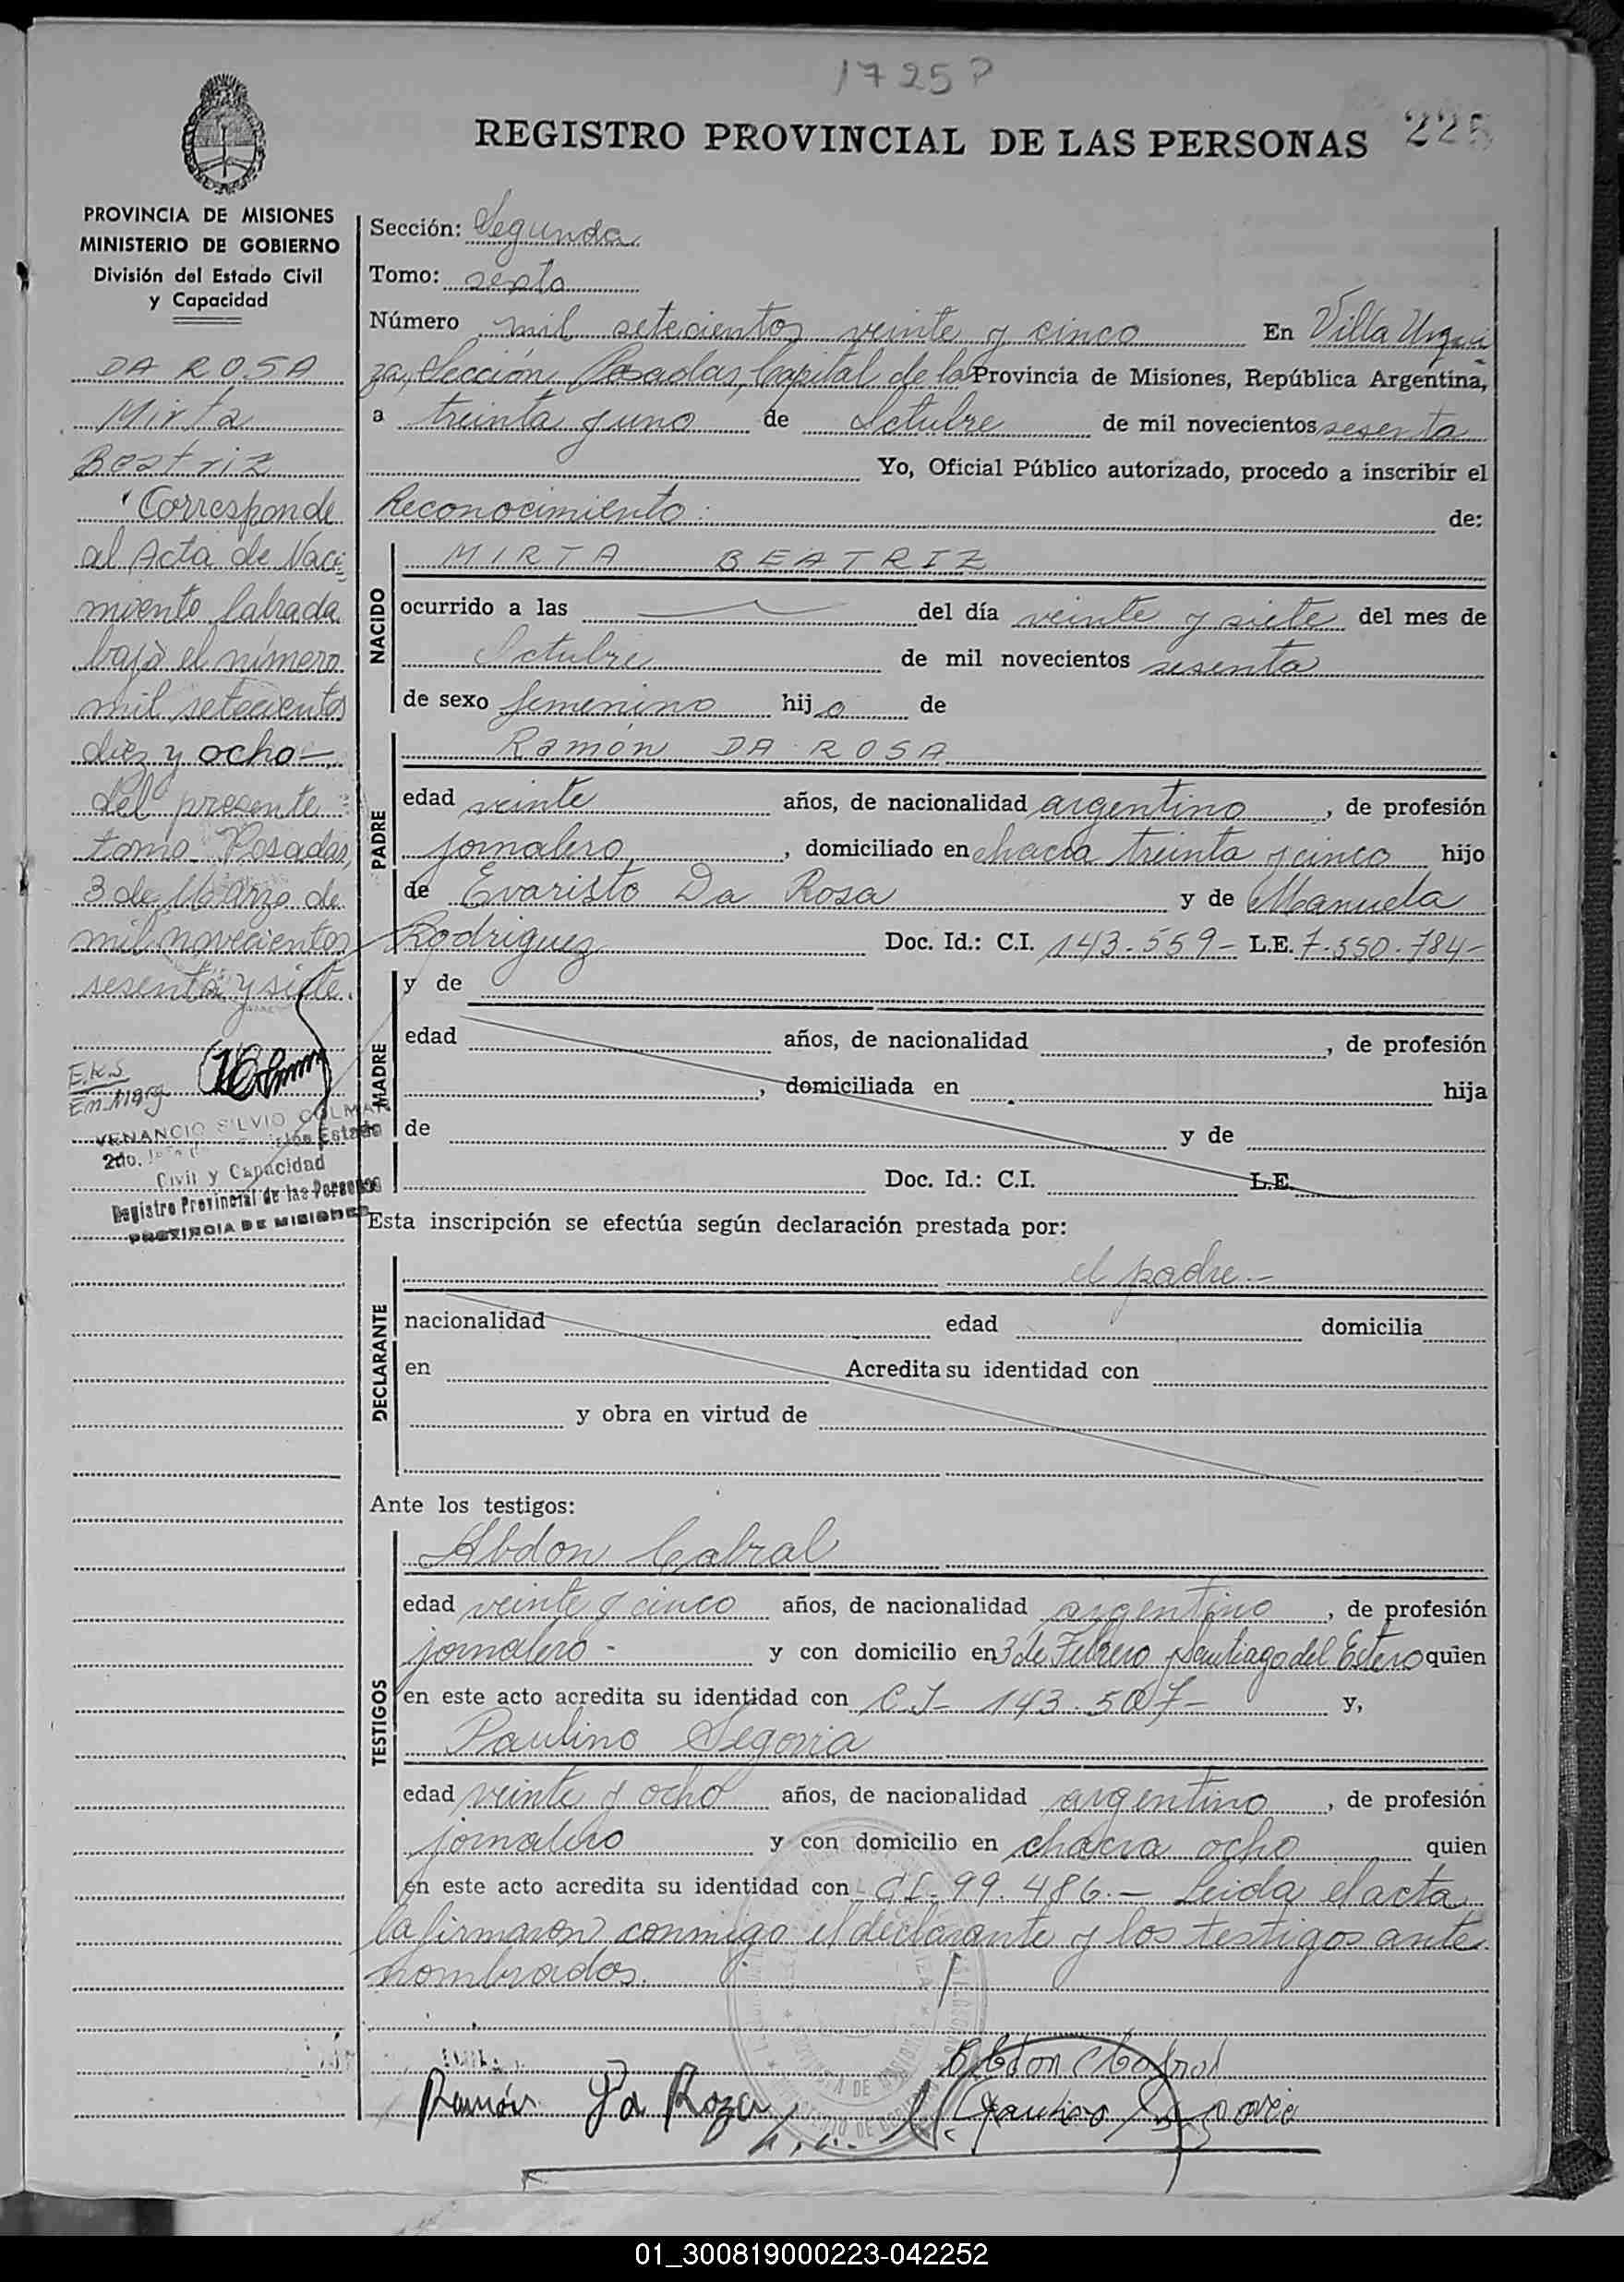 1725
REGISTRO PROVINCIAL DE LAS PERSONAS
225
PROVINCIA DE MISIONES
MINISTERIO DE GOBIERNO
División del Estado Civil
y Capacidad
DA ROSA
Mirta
Beatriz
Corresponde
al Acta de Naci-
miento labrada
bajo el número
mil setecientos
diez y ocho-
del presente
tomo. Posadas,
3 de Marzo de
mil novecientos
sesenta y siete.
E.K.S
En Marg
VENANCIO SILVIO COLMAN
2do.
Civil y Capacidad
Registro Provincial de las Personas
PROVINCIA DE MISIONES
Sección: Segunda
Tomo: sexto
Número mil setecientos veinte y cinco En Villa Urqui
za, Sección Posadas, Capital de la Provincia de Misiones, República Argentina,
a treinta y uno de Octubre de mil novecientos sesenta
Yo, Oficial Público autorizado, procedo a inscribir el
Reconocimiento: de:
NACIDO
MIRTA BEATRIZ
ocurrido a las del día veinte y siete del mes de
Octubre de mil novecientos sesenta
de sexo femenino hija de
PADRE
Ramón DA ROSA
edad veinte años, de nacionalidad argentino, de profesión
jornalero, domiciliado en chacra treinta y cinco hijo
de Evaristo Da Rosa y de Manuela
Rodriguez Doc. Id.: C.I. 143.559- L.E. 7.550.784-
MADRE
y de
edad años, de nacionalidad , de profesión
, domiciliada en hija
de y de
Doc. Id.: C.I. L.E.
Esta inscripción se efectúa según declaración prestada por:
DECLARANTE
el padre.-
nacionalidad edad domicilia
en Acredita su identidad con
y obra en virtud de
Ante los testigos:
TESTIGOS
Abdon Cabral
edad veinte y cinco años, de nacionalidad argentino, de profesión
jornalero- y con domicilio en 3 de Febrero y Santiago del Estero quien
en este acto acredita su identidad con C.I- 143.507- y,
Paulino Segovia
edad veinte y ocho años, de nacionalidad argentino, de profesión
jornalero y con domicilio en chacra ocho quien
en este acto acredita su identidad con C.I- 99.486.- Leida el acta
la firmaron conmigo el declarante y los testigos ante
nombrados.
Abdon Cabral
Ramón Da Roza
Paulino Segovia
01_300819000223-042252